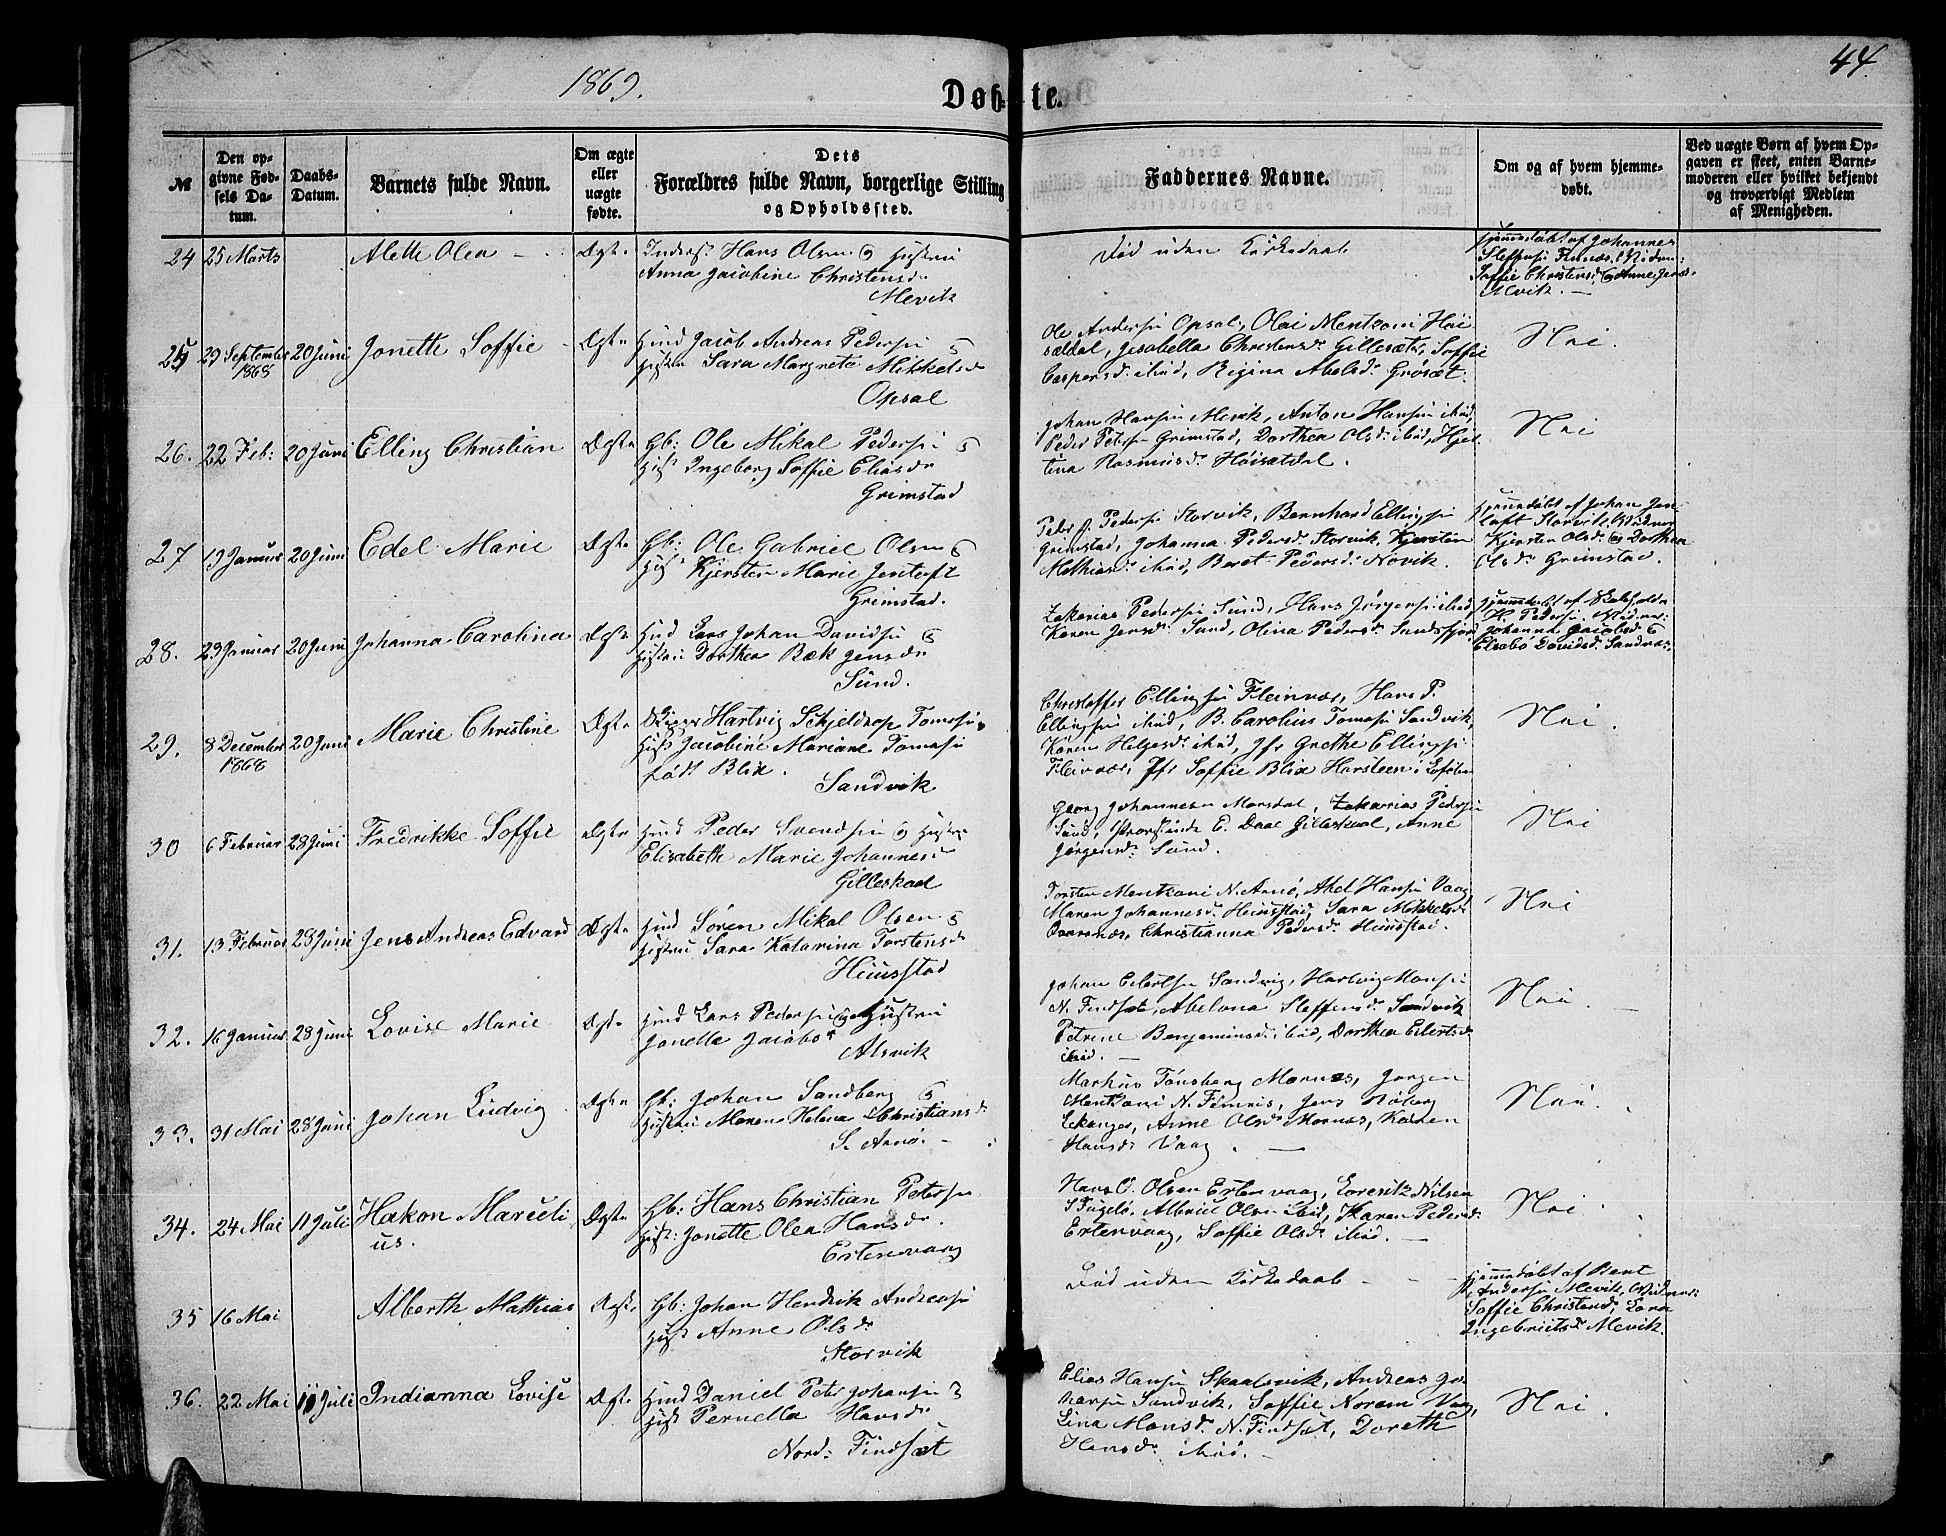 1869.
Døbte.
44.
№
Den opgivne Fødsels Datum.
Daabs-Datum.
Barnets fulde Navn.
Om ægte eller uægte fødte.
Dets Forældres fulde Navn, borgerlige Stilling og Opholdssted.
Faddernes Navne.
Om og af hvem hjemmedøbt.
Ved uægte Børn af hvem Opgaven er skeet, enten Barnemoderen eller hvilket bekjendt og troværdigt Medlem af Menigheden.
24 25 Marts Alette Olea Ægte Inderst Hans Olsen og Hustru
Anna Jacobine Christensdr
Mevik
Død uden Kirkedaab
Hjemmedøbt af Johannes
Steffensen
Soffie Christensd. og Anne Jensd.
Mevik.
25 29 September 1868 20 Juni Jonette Soffie Ægte Huusd Jacob Andreas Pedersen &
Hustru Sara Margrete Mikkelsdr
Opsal
Ole Andersen Opsal, Olai Mentzoni Høi
sædal, Jesabella Christensdr Gillesæter, Soffie
Caspersd. ibid, Regina Abelsdr Grøsæt.
Nei.
26. 22 Feb: 20 Juni Elling Christian Ægte Gb: Ole Mikal Pedersen &
Hust Ingeborg Soffie Eliasdr
Grimstad
Johan Hansen Mevik, Anton Hansen ibid,
Peder Petersen Grimstad, Dorthea Olsdr ibid,
Rasmusdr Høisætdal.
Nei
27 19 Januar 20 Juni Edel Marie Ægte Gb: Ole Gabriel Olsen &
Hust Kjersten Marie Jentoft
Grimstad.
Peder J. Pedersen Storvik, Bernhard Ellingsen
Grimstad, Johanna Pedersdr Storvik, Kjersten
Mathiasdr ibid, Beret Pedersdr Novik.
Hjemmedøbt af Johan Jen
toft Storvik, Vidner
Kjersten Olsdr og Dorthea
Olsdr Grimstad.
28. 29 Januar 20 Juni Johanna Carolina Ægte Huusd Lars Johan Davidsen &
Hustru Dorthea Bæk Jensdr
Sund.
Zakarias Pedersen Sund, Hans Jørgensen ibid,
Karen Jensdr Sund, Olina Pedersdr Sandsfjord
Hjemmedøbt af Skoleholder
H. Pedersen, Vidner:
Johanna Jacobsd. &
Elsebe Davidsd. Sandnæs
29. 8 December 1868 20 Juni Marie Christine Ægte Hartvig Schjelderop Tomasen &
Hust Jacobine Mariane Tomasen
født Blix.
Sandvik
Christoffer Ellingsen Fleinvær, Hans P.
Ellingsen ibid, B. Carolius Tomasen Sandvik,
Karen Helgesdr ibid, Jfr Grethe Ellingsen
Fleinvær, Jfr Soffie Blix Harsteen i Lofoten
Nei.
30 6 Februar 28 Juni Fredrikke Soffie Ægte Huusd Peder Svendsen og Hustru
Elisabeth Marie Johannesdr
Gilleskaal
Georg Johannesen Marsdal, Zakarias Pedersen
Sund, Provstinde E. Daae Gilleskaal, Anne
Jørgensdr Sund.
Nei
31. 13 Februar 28 Juni Jens Andreas Edvard Ægte Huusd Sören Mikal Olsen &
Hustru Sara Katarina Torstensdr
Huusstad
Torsten Mentzoni N. Arnø, Axel Hansen Vaag
Maren Johannesdr Huusstad, Sara Mikkelsdr
Christianna Pedersdr Huusstad.
Nei
32. 16 Januar 28 Juni Lovise Marie Ægte Huusd Lars Pedersen og Hustru
Jonella Jacobsdr
Alsvik
Johan Eilertsen Sandvig, Hartvig Monsen
N. Findset, Abelona Steffensdr Sandvik
Petrine Benjaminsd. ibid, Dorthea Eilertsdr
ibid.
Nei.
33. 31 Mai 28 Juni Johan Ludvig Ægte Gb: Johan Sandberg &
Hustru Maren Helena Christiansdr
S. Arnø.
Markus Tønsberg Mornæs, Jørgen
Mentzoni N. Jens
Anne Olsdr Mornæs, Karen
Hansdr Vaag.
Nei.
34. 24 Mai 11 Juli Hakon Marceli
us. Ægte Gb: Hans Christian Petersen
Hust: Jonette Olea Hansdr.
Ertenvaag
Hans O. Olsen Ertenvaag, Nilsen
S. Fugelø, Albriet Olsen ibid, Karen Pedersdr
Ertenvaag, Soffie Olsdr ibid.
Nei
35 16 Mai Alberth Mathias Ægte Gb: Johan Hendrik Andreasen
Hust Anne Olsdr
Storvik
Død uden Kirkedaab
Hjemmedøbt af Bent
Andersen Mevik, Vidner:
Soffie Christensd, Lena
Ingebrigtsdr Mevik.
36. 22 Mai 11 Juli Indianna Lovise Ægte Huusd Daniel Peter Johansen &
Hust Pernella Hansdr
Nord: Findset
Elias Hansen Skaalsvik, Andreas Jo
hansen Sandvik, Soffie Norum Vaag,
Lina Monsdr N. Findset, Doreth
Hansdr ibid.
Nei.